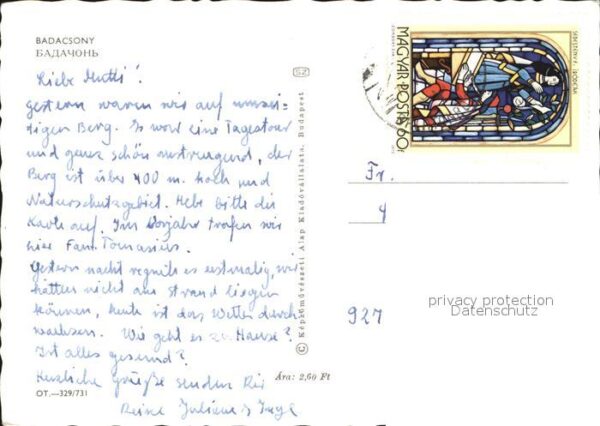 BADACSONY
БАДАЧОНЬ
Liebe Mutti!
gestern waren wir auf
digen Berg. Es war eine Tagestour
und ganz schön anstrengend, der
Berg ist über 400 m. hoch und
Naturschutzgebiet. Hebe bitte die
Karte auf. Im Vorjahr trafen wir
hier Fam. Tomasius.
Gestern nacht regnete es erstmalig, wir
hätten nicht am Strand liegen
können, heute ist das Wetter durch
wachsen. Wie geht es zu Hause?
Ist alles gesund?
Herzliche Grüße senden Dir
Deine Juliane & Inge
OT.—329/731
Ára: 2,60 Ft
© Képzőművészeti Alap Kiadóvállalata, Budapest
SZ
MAGYAR POSTA 60f
Fr.
4
927
privacy protection
Datenschutz